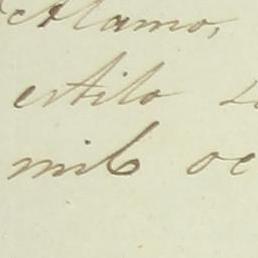 Alamo,
estilo
mil oc